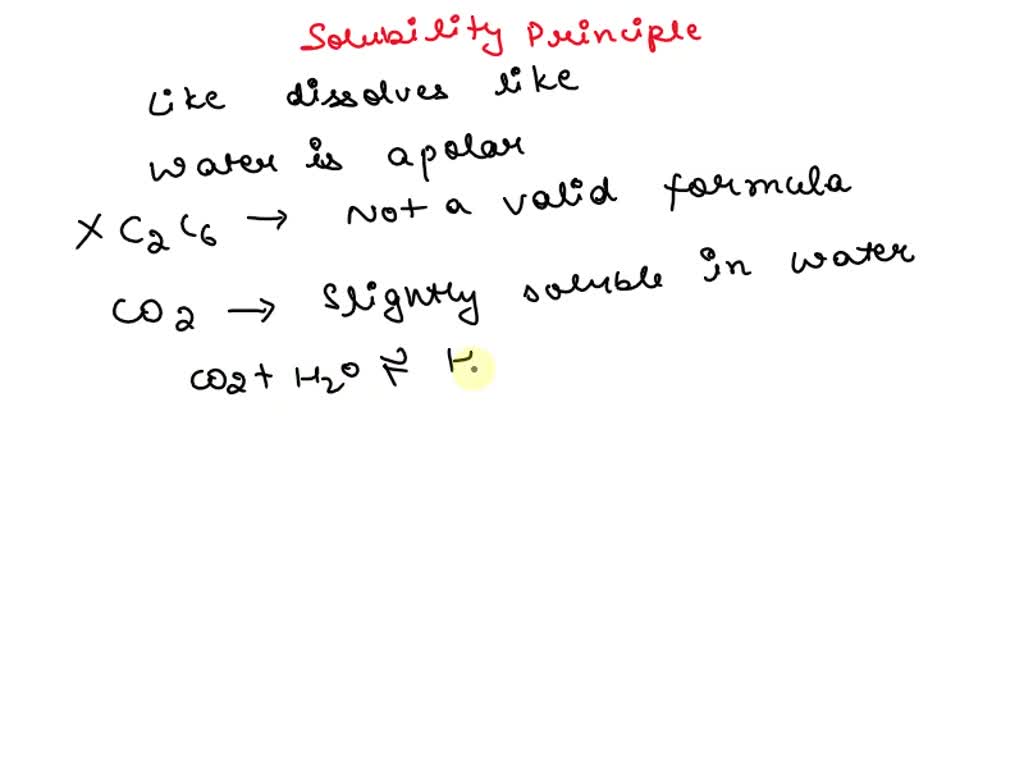 Solubility Principle
Like dissolves like
water is a polar
X C2C6 → Not a valid formula
CO2 → Slightly soluble in water
CO2 + H2O ⇌ H